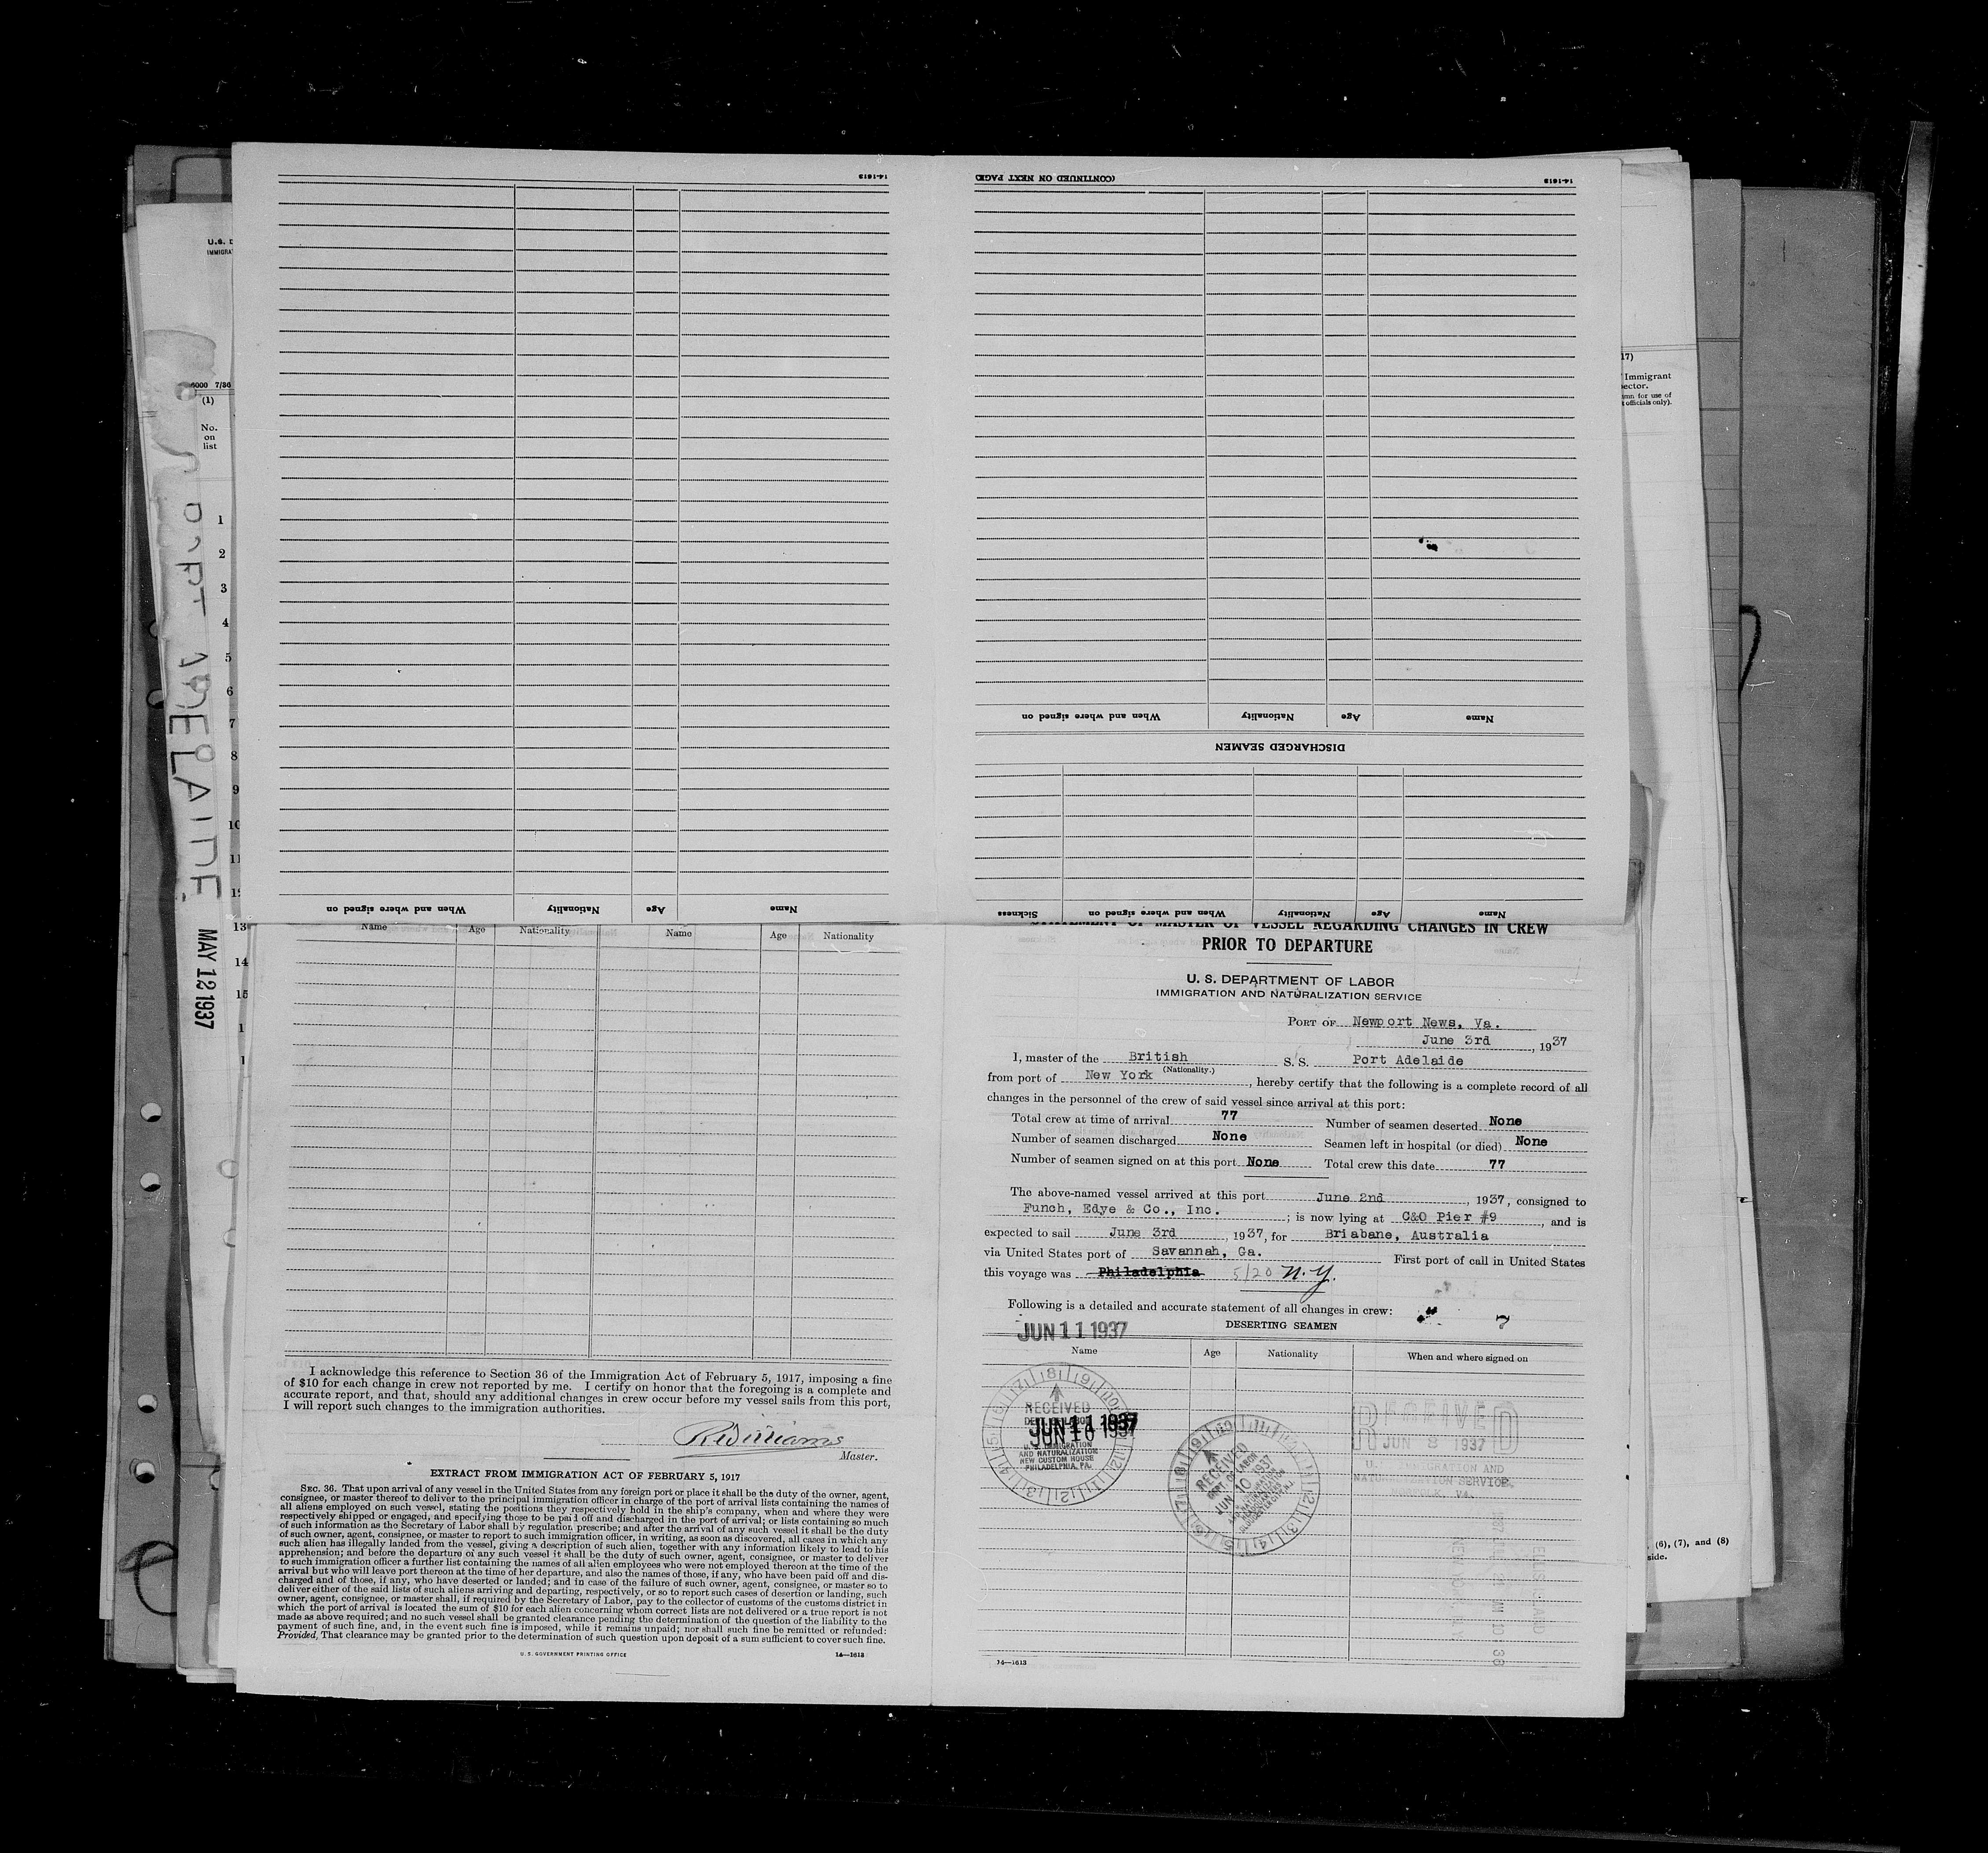 14-1613
(CONTINUED ON NEXT PAGE)
14-1613
When and where signed on
Nationality
Age
Name
DISCHARGED SEAMEN
When and where signed on
Nationality
Age
Name
Sickness
When and where signed on
Nationality
Age
Name
U.S. D
IMMIGRA
6000 7/36
(1)
No.
on
list
1
2
3
4
5
6
7
8
9
10
11
13
14
15
PORT ADELAIDE
MAY 12 1937
17)
Immigrant
ector.
mn for use of
t officials only).
(6), (7), and (8)
side.
Name Age Nationality Name Age Nationality
I acknowledge this reference to Section 36 of the Immigration Act of February 5, 1917, imposing a fine
of $10 for each change in crew not reported by me. I certify on honor that the foregoing is a complete and
accurate report, and that, should any additional changes in crew occur before my vessel sails from this port,
I will report such changes to the immigration authorities.
Master.
EXTRACT FROM IMMIGRATION ACT OF FEBRUARY 5, 1917
SEC. 36. That upon arrival of any vessel in the United States from any foreign port or place it shall be the duty of the owner, agent,
consignee, or master thereof to deliver to the principal immigration officer in charge of the port of arrival lists containing the names of
all aliens employed on such vessel, stating the positions they respectively hold in the ship's company, when and where they were
respectively shipped or engaged, and specifying those to be paid off and discharged in the port of arrival; or lists containing so much
of such information as the Secretary of Labor shall by regulation prescribe; and after the arrival of any such vessel it shall be the duty
of such owner, agent, consignee, or master to report to such immigration officer, in writing, as soon as discovered, all cases in which any
such alien has illegally landed from the vessel, giving a description of such alien, together with any information likely to lead to his
apprehension; and before the departure of any such vessel it shall be the duty of such owner, agent, consignee, or master to deliver
to such immigration officer a further list containing the names of all alien employees who were not employed thereon at the time of the
arrival but who will leave port thereon at the time of her departure, and also the names of those, if any, who have been paid off and dis-
charged and of those, if any, who have deserted or landed; and in case of the failure of such owner, agent, consignee, or master so to
deliver either of the said lists of such aliens arriving and departing, respectively, or so to report such cases of desertion or landing, such
owner, agent, consignee, or master shall, if required by the Secretary of Labor, pay to the collector of customs of the customs district in
which the port of arrival is located the sum of $10 for each alien concerning whom correct lists are not delivered or a true report is not
made as above required; and no such vessel shall be granted clearance pending the determination of the question of the liability to the
payment of such fine, and, in the event such fine is imposed, while it remains unpaid; nor shall such fine be remitted or refunded:
Provided, That clearance may be granted prior to the determination of such question upon deposit of a sum sufficient to cover such fine.
U.S. GOVERNMENT PRINTING OFFICE 14—1613
STATEMENT OF MASTER OF VESSEL REGARDING CHANGES IN CREW
PRIOR TO DEPARTURE
U. S. DEPARTMENT OF LABOR
IMMIGRATION AND NATURALIZATION SERVICE
PORT OF Newport News, Va.
June 3rd, 1937
I, master of the British S. S. Port Adelaide
(Nationality.)
from port of New York, hereby certify that the following is a complete record of all
changes in the personnel of the crew of said vessel since arrival at this port:
Total crew at time of arrival 77 Number of seamen deserted None
Number of seamen discharged None Seamen left in hospital (or died) None
Number of seamen signed on at this port None Total crew this date 77
The above-named vessel arrived at this port June 2nd, 1937, consigned to
Funch, Edye & Co., Inc.; is now lying at C&O Pier #9, and is
expected to sail June 3rd, 1937, for Brisbane, Australia
via United States port of Savannah, Ga. First port of call in United States
this voyage was Philadelphia 5/20 N.Y.
Following is a detailed and accurate statement of all changes in crew:
JUN 11 1937
DESERTING SEAMEN
Name Age Nationality When and where signed on
RECEIVED
DEPT. OF LABOR
JUN 11 1937
JUN 10 1937
U.S. IMMIGRATION
AND NATURALIZATION
NEW CUSTOM HOUSE
PHILADELPHIA, PA.
RECEIVED
DEPT. OF LABOR
JUN 10 1937
RECEIVED
JUN 8 1937
U.S. IMMIGRATION AND
NATURALIZATION SERVICE
ELLIS ISLAND
NEW YORK, N.Y.
14—1613